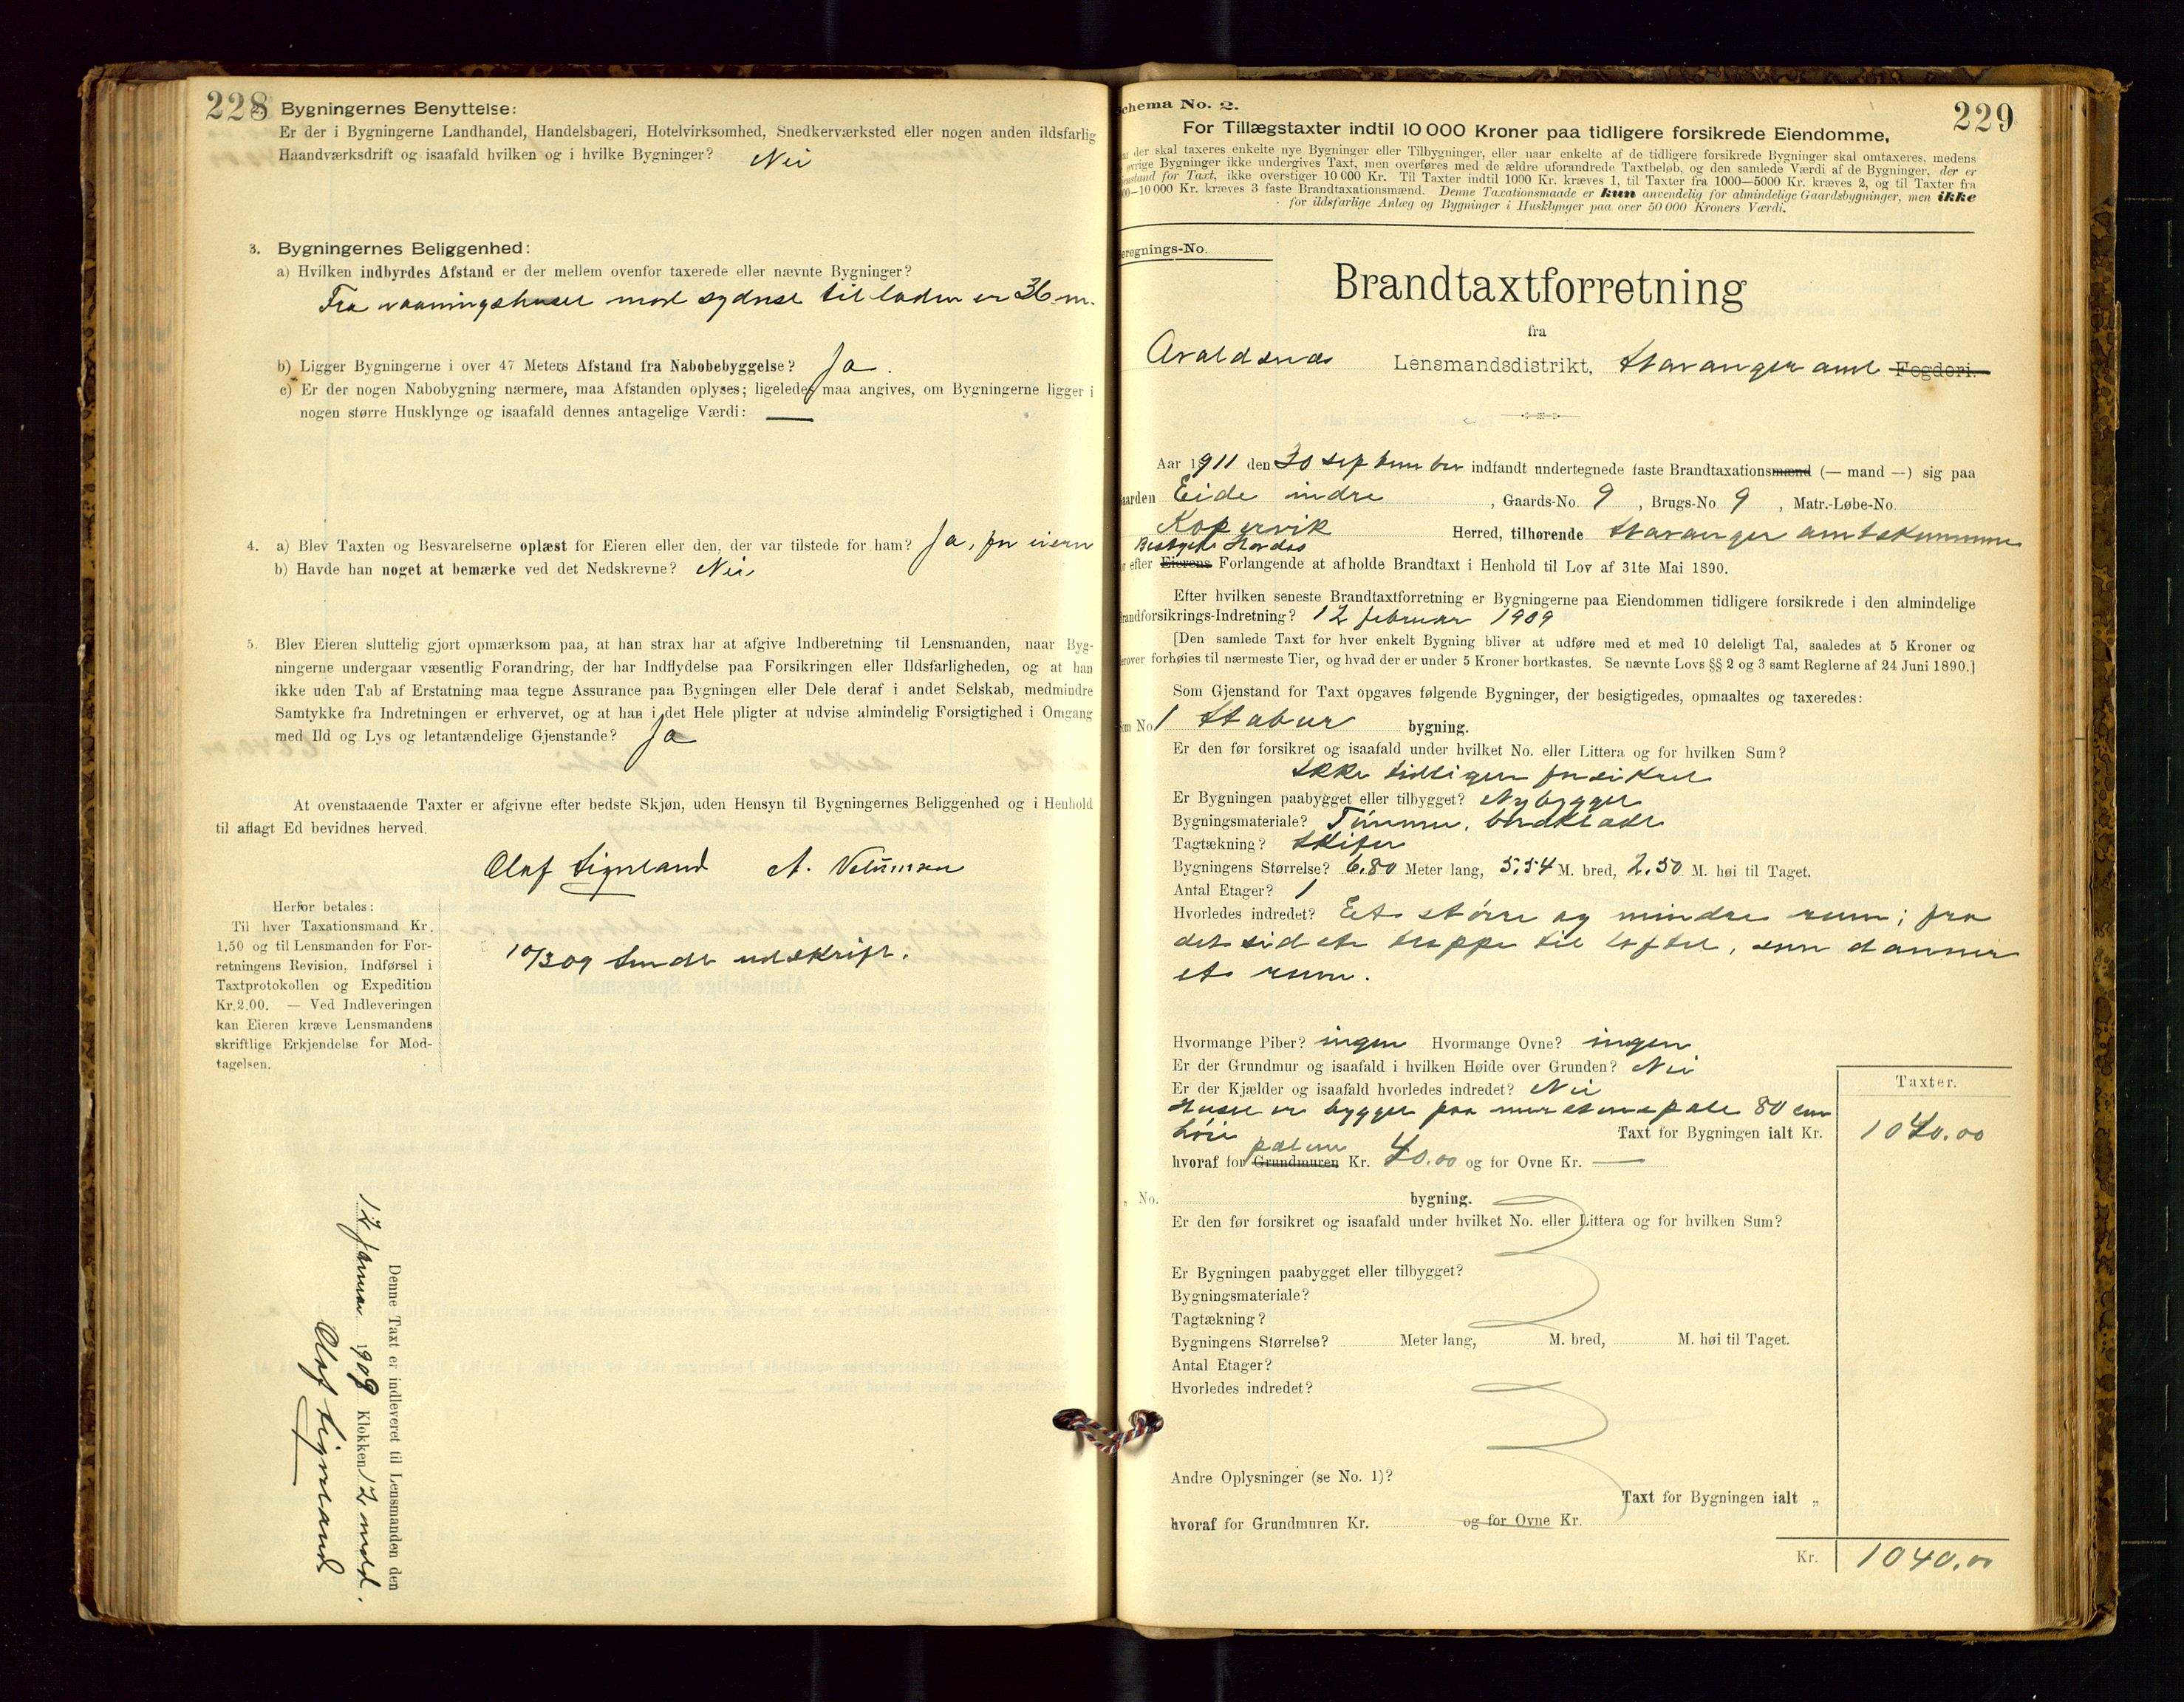 228
2. Bygningernes Benyttelse:
Er der i Bygningerne Landhandel, Handelsbageri, Hotelvirksomhed, Snedkerværksted eller nogen anden ildsfarlig
Haandværksdrift og isaafald hvilken og i hvilke Bygninger? Nei
3. Bygningernes Beliggenhed:
a) Hvilken indbyrdes Afstand er der mellem ovenfor taxerede eller nævnte Bygninger?
Fra vaaningshuset mod sydvest til laden er 36 m.
b) Ligger Bygningerne i over 47 Meters Afstand fra Nabobebyggelse? Ja.
c) Er der nogen Nabobygning nærmere, maa Afstanden oplyses; ligeledes maa angives, om Bygningerne ligger i
nogen større Husklynge og isaafald dennes antagelige Værdi: —
4. a) Blev Taxten og Besvarelserne oplæst for Eieren eller den, der var tilstede for ham? Ja, for eieren
b) Havde han noget at bemærke ved det Nedskrevne? Nei
5. Blev Eieren sluttelig gjort opmærksom paa, at han strax har at afgive Indberetning til Lensmanden, naar Byg-
ningerne undergaar væsentlig Forandring, der har Indflydelse paa Forsikringen eller Ildsfarligheden, og at han
ikke uden Tab af Erstatning maa tegne Assurance paa Bygningen eller Dele deraf i andet Selskab, medmindre
Samtykke fra Indretningen er erhvervet, og at han i det Hele pligter at udvise almindelig Forsigtighed i Omgang
med Ild og Lys og letantændelige Gjenstande? Ja
At ovenstaaende Taxter er afgivne efter bedste Skjøn, uden Hensyn til Bygningernes Beliggenhed og i Henhold
til aflagt Ed bevidnes herved.
Olaf Signeland A.
Herfor betales:
Til hver Taxationsmand Kr.
1.50 og til Lensmanden for For-
retningens Revision, Indførsel i
Taxtprotokollen og Expedition
Kr. 2.00. — Ved Indleveringen
kan Eieren kræve Lensmandens
skriftlige Erkjendelse for Mod-
tagelsen.
10/3 09 sendt udskrift.
Denne Taxt er indleveret til Lensmanden den
12 januar 1909 Klokken 12 midd.
Olaf Signeland
229
Schema No. 2.
For Tillægstaxter indtil 10 000 Kroner paa tidligere forsikrede Eiendomme,
der skal taxeres enkelte nye Bygninger eller Tilbygninger, eller naar enkelte af de tidligere forsikrede Bygninger skal omtaxeres, medens
øvrige Bygninger ikke undergives Taxt, men overføres med de ældre uforandrede Taxtbeløb, og den samlede Værdi af de Bygninger, der er
Gjenstand for Taxt, ikke overstiger 10 000 Kr. Til Taxter indtil 1000 Kr. kræves 1, til Taxter fra 1000—5000 Kr. kræves 2, og til Taxter fra
—10 000 Kr. kræves 3 faste Brandtaxationsmænd. Denne Taxationsmaade er kun anvendelig for almindelige Gaardsbygninger, men ikke
for ildsfarlige Anlæg og Bygninger i Husklynger paa over 50 000 Kroners Værdi.
Beregnings-No.
Brandtaxtforretning
fra
Avaldsnes Lensmandsdistrikt, Stavanger amt Fogderi.
Aar 1911 den 30 september indfandt undertegnede faste Brandtaxationsmænd (— mand —) sig paa
Gaarden Eide indre, Gaards-No. 9, Brugs-No 9, Matr.-Løbe-No.
Kopervik Herred, tilhørende Stavanger amtskommune
Bestyrer Hordas
efter Eierens Forlangende at afholde Brandtaxt i Henhold til Lov af 31te Mai 1890.
Efter hvilken seneste Brandtaxtforretning er Bygningerne paa Eiendommen tidligere forsikrede i den almindelige
Brandforsikrings-Indretning? 12 februar 1909
[Den samlede Taxt for hver enkelt Bygning bliver at udføre med et med 10 deleligt Tal, saaledes at 5 Kroner og
derover forhøies til nærmeste Tier, og hvad der er under 5 Kroner bortkastes. Se nævnte Lovs §§ 2 og 3 samt Reglerne af 24 Juni 1890.]
Som Gjenstand for Taxt opgaves følgende Bygninger, der besigtigedes, opmaaltes og taxeredes:
Som No 1 Stabur bygning.
Er den før forsikret og isaafald under hvilket No. eller Littera og for hvilken Sum?
Ikke tidligere forsikret
Er Bygningen paabygget eller tilbygget? Nybygget
Bygningsmateriale? Tømmer, bordklædt
Tagtækning? Skifer
Bygningens Størrelse? 6.80 Meter lang, 5.54 M. bred, 2.50 M. høi til Taget.
Antal Etager? 1
Hvorledes indredet? Et større og mindre rum; fra
det sidste trappe til loftet, som danner
et rum.
Hvormange Piber? ingen Hvormange Ovne? ingen
Er der Grundmur og isaafald i hvilken Høide over Grunden? Nei
Er der Kjælder og isaafald hvorledes indredet? Nei
Taxter.
Huset er bygget paa murstenspæle 80 cm
høie
Taxt for Bygningen ialt Kr. 1040.00
pælene
hvoraf for Grundmuren Kr. 40.00 og for Ovne Kr. —
„ No. bygning.
Er den før forsikret og isaafald under hvilket No. eller Littera og for hvilken Sum?
Er Bygningen paabygget eller tilbygget?
Bygningsmateriale?
Tagtækning?
Bygningens Størrelse? Meter lang, M. bred, M. høi til Taget.
Antal Etager?
Hvorledes indredet?
Andre Oplysninger (se No. 1)?
Taxt for Bygningen ialt „
hvoraf for Grundmuren Kr. og for Ovne Kr.
Kr. 1040.00